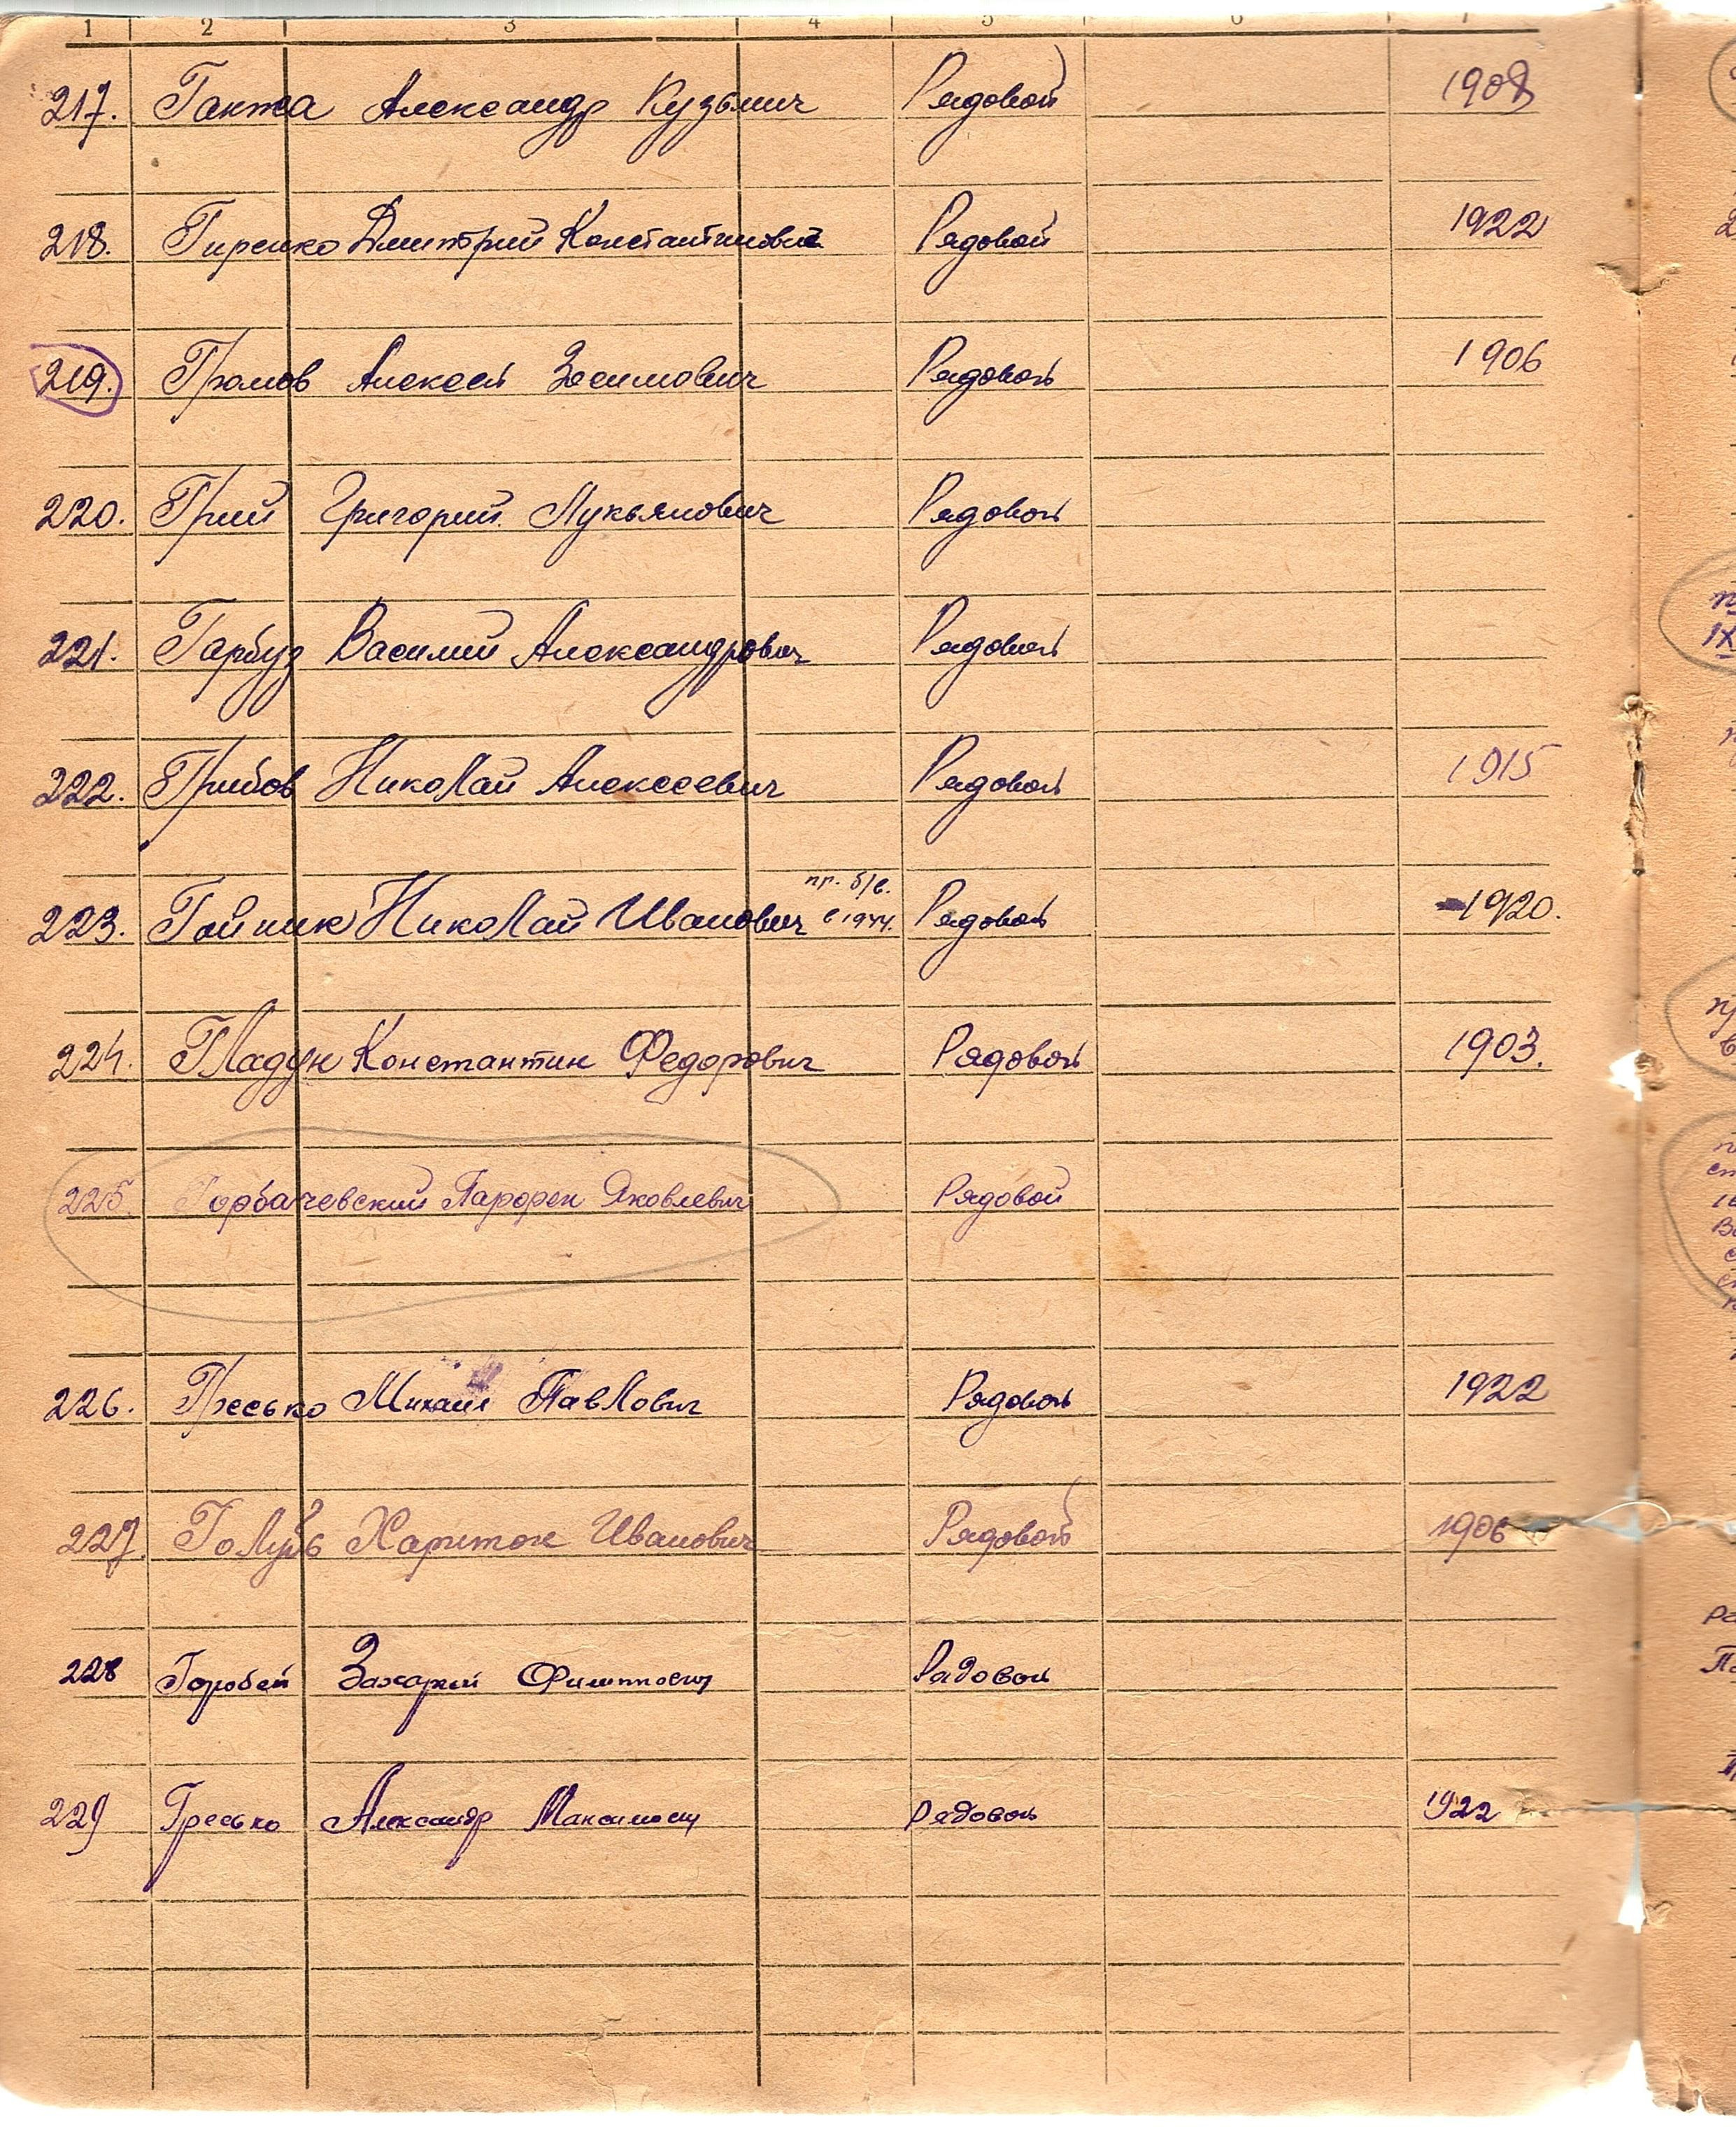 1 2 3 4 5 6 7
217. Ганжа Александр Кузьмич Рядовой 1908
218. Гиренко Дмитрий Константинович Рядовой 1922
219. Громов Алексей Зосимович Рядовой 1906
220. Грий Григорий Лукьянович Рядовой
221. Гарбуз Василий Александрович Рядовой
222. Грибов Николай Алексеевич Рядовой 1915
пр. б/в.
223. Гойник Николай Иванович в 1944. Рядовой 1920.
224. Гладун Константин Федорович Рядовой 1903.
225. Горбачевский Парфен Яковлевич Рядовой
226. Гресько Михаил Павлович Рядовой 1922
227 Голубь Харитон Иванович Рядовой 1906
228 Горобей Захарий Филиппович Рядовой
229 Гресько Александр Максимович Рядовой 1922